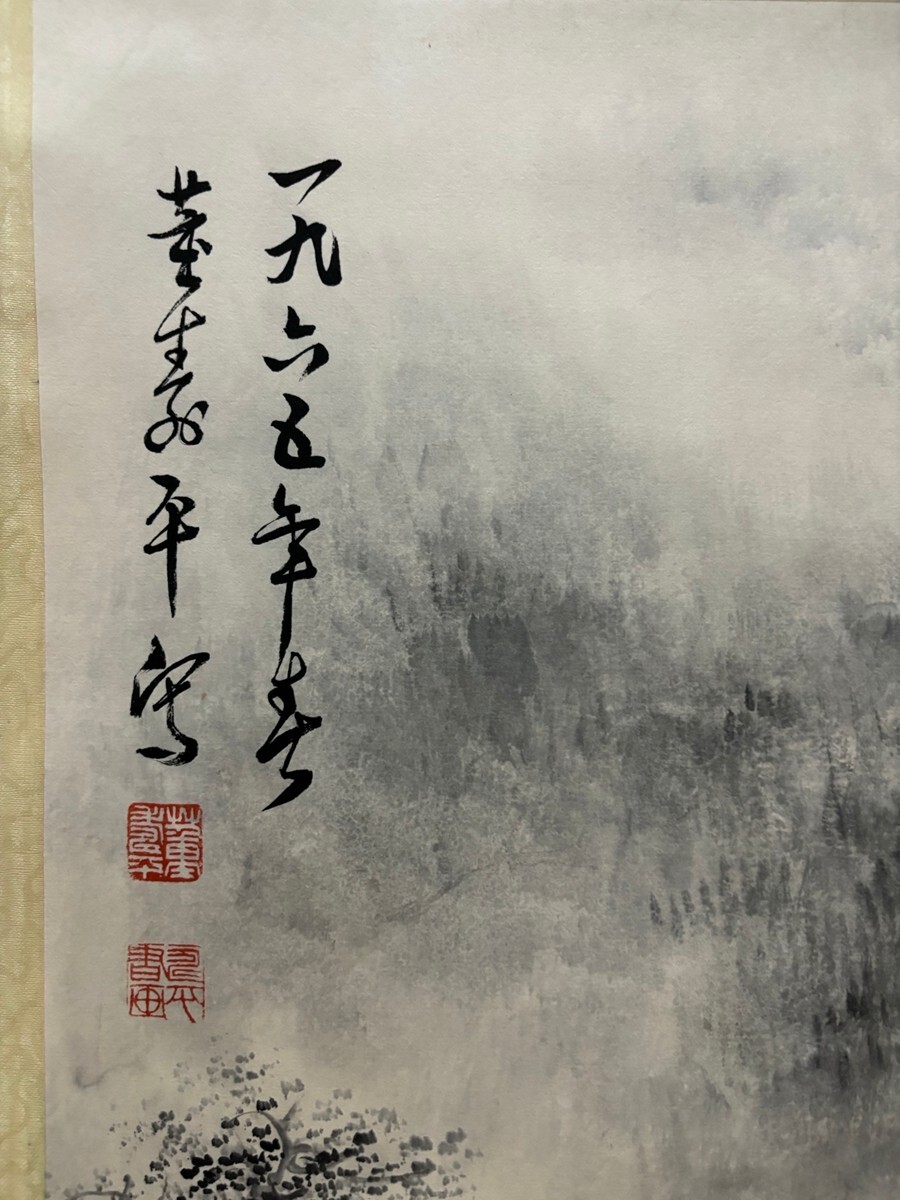 一九六五年春
董寿平写
董壽平